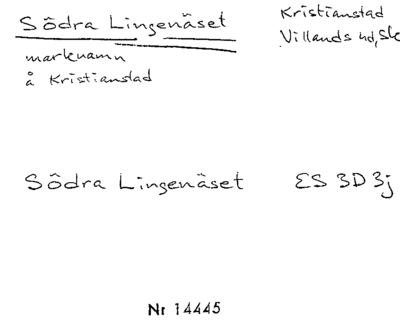 Södra Lingenäset
Kristianstad
Villands hd, Sk
marknamn
å Kristianstad
Södra Lingenäset ES 3D3j
Nr 14445